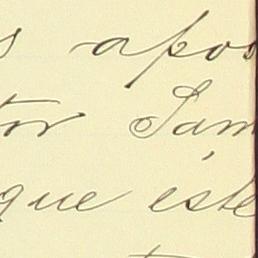 s apos
tor Sam
que este